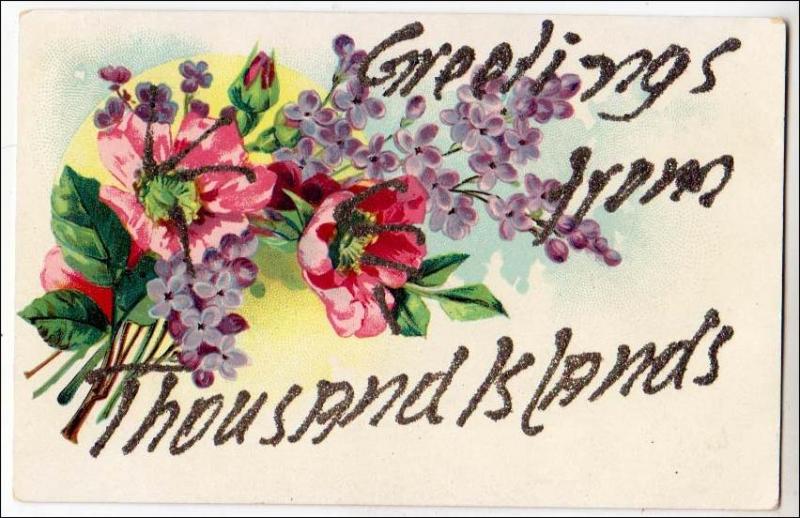 Greetings
from
Thousand Islands